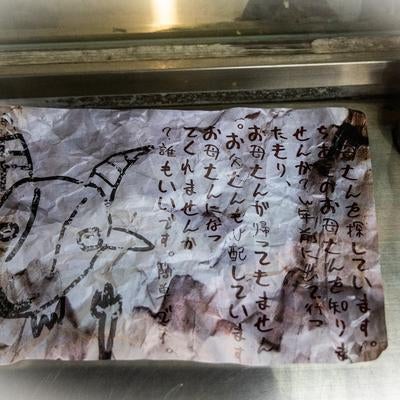 母さんを探しています。
のお母さんを知りま
せんか？年前に出て行っ
たきり、
お母さんが帰ってきません
。お父さんも心配しています
お母さんになっ
てくれませんか
？誰もいいです。簡単です。